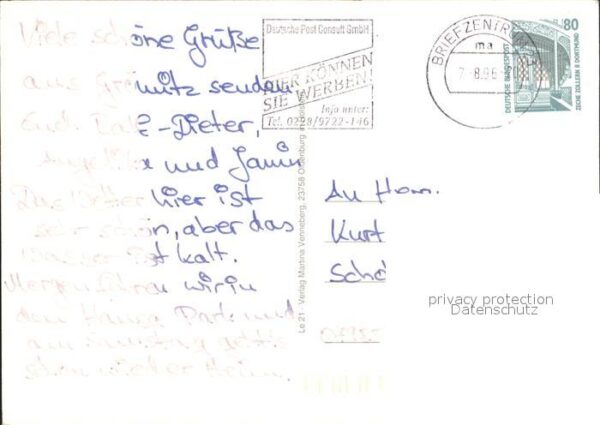 Viele schöne Grüße
aus Grömitz senden
Euch Ralf-Dieter,
Angelika und Jamin
Das Wetter hier ist
sehr schön, aber das
Wasser ist kalt.
Morgen fahren wir in
den Hansa Park und
am Samstag geht's
schon wieder Heim.
Deutsche Post Consult GmbH
HIER KÖNNEN
SIE WERBEN!
Info unter:
Tel. 0228/9722-146
BRIEFZENTRUM
ma
80
DEUTSCHE BUNDESPOST
ZECHE ZOLLERN II DORTMUND
Le 21 - Verlag Martina Venneberg, 23758 Oldenburg
An Herrn.
Kurt
Schö
privacy protection
Datenschutz